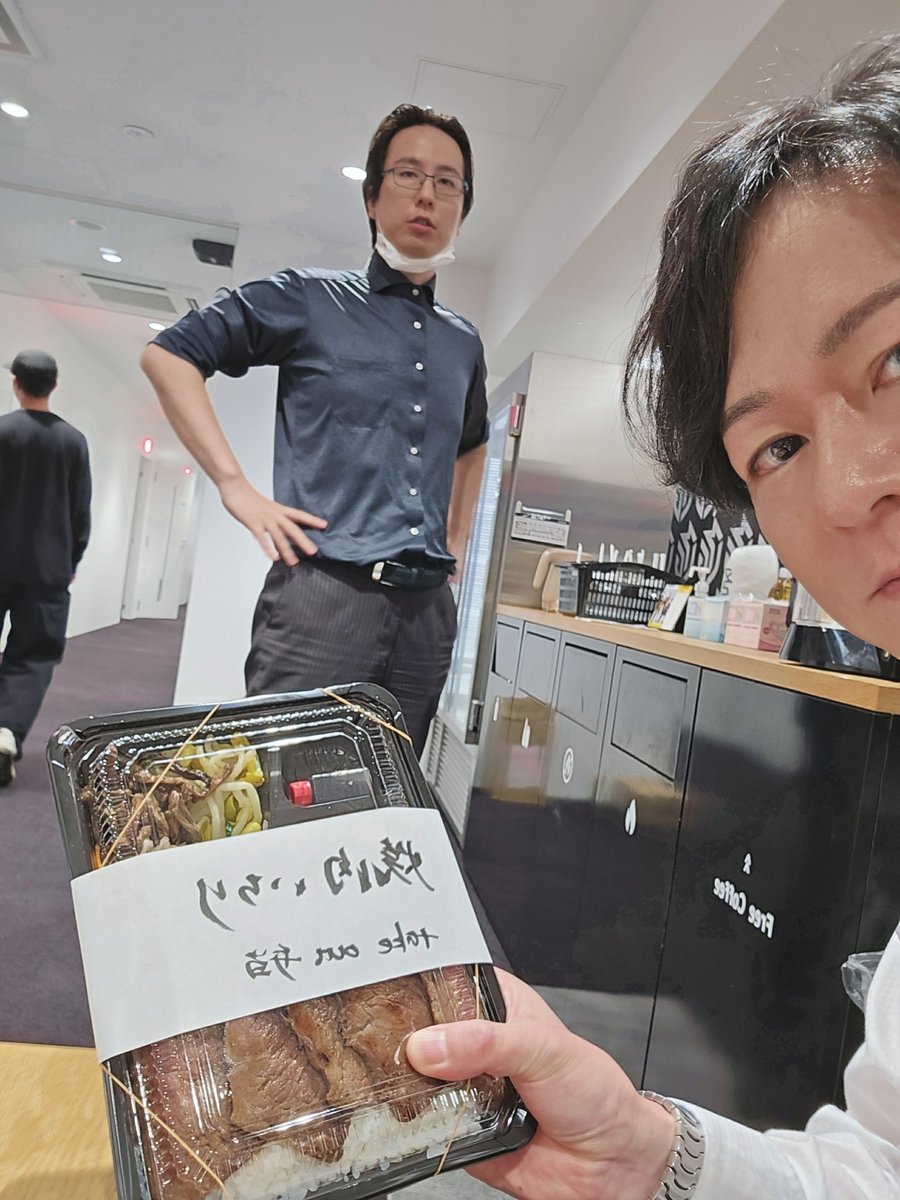 焼肉いちり
take out 弁当
Free Coffee